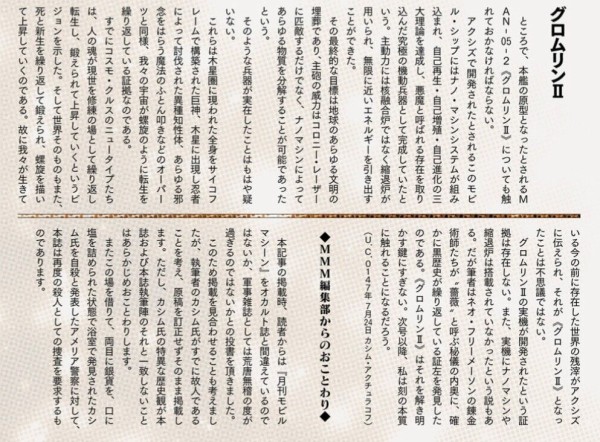 グロムリンⅡ
ところで、本艦の原型となったとされるM
AN-05-2《グロムリンⅡ》についても触
れておかなければならない。
アクシズで開発されたとされるこのモビ
ル・シップにはナノ・マシンシステムが組み
込まれ、自己再生・自己増殖・自己進化の三
大理論を達成し、悪魔と呼ばれる存在を取り
込んだ究極の機動兵器として完成していたと
いう。主動力には核融合炉ではなく縮退炉が
用いられ、無限に近いエネルギーを引き出す
ことができた。
その最終的な目標は地球のあらゆる文明の
埋葬であり、主砲の威力はコロニー・レーザー
に匹敵するだけでなく、ナノマシンによって
あらゆる物質を分解することが可能であった
という。
そのような兵器が実在したことはもはや疑
いない。
これらは木星圏に現われた全身をサイコフ
レームで構築された巨神、木星に出現し忍者
によって討伐された異種知性体、あらゆる邪
念をはらう魔法のふとん叩きなどのオーパー
ツと同様、我々の宇宙が螺旋のように転生を
繰り返している証拠なのである。
すでにコスモ・クルスのニュータイプたち
は、人の魂が現世を修練の場として繰り返し
転生し、鍛えられて上昇していくというビ
ジョンを示した。そして世界そのものもまた、
死と新生を繰り返して鍛えられ、螺旋を描い
て上昇していくのである。故に我々が生きて
いる今の前に存在した世界の残滓がアクシズ
に伝えられ、それが《グロムリンⅡ》となっ
たことは不思議ではない。
グロムリンⅡの実機が開発されたという証
拠は存在しない。また、実機にナノマシンや
縮退炉は搭載されていなかったという説もあ
る。だが筆者はネオ・フリーメーソンの錬金
術師たちが“薔薇”と呼ぶ秘儀の内奥に、確
かに黒歴史が繰り返している証左を発見した
のである。《グロムリンⅡ》はそれを解き明
かす鍵にすぎない。次号以降、私は刻の本質
に触れることになるだろう。
(U.C.0147年7月24日 カシム・アクチュラコフ)
◆MMM編集部からのおことわり◆
本記事の掲載時、読者からは『月刊モビル
マシーン』をオカルト誌と間違えているので
はないか、軍事雑誌としては荒唐無稽の度が
過ぎるのではないかとの投書を頂きました。
このため掲載を見合わせることも考えまし
たが、執筆者のカシム氏がすでに故人である
ことを考え、原稿を訂正せずそのまま掲載し
ます。ただし、カシム氏の特異な歴史観が本
誌および本誌執筆陣のそれと一致しないこと
はあらかじめおことわりします。
またこの場を借りて、両目に銀貨を、口に
塩を詰められた状態で浴室で発見されたカシ
ム氏を自殺と発表したアメリア警察に対して、
本誌は再度の殺人としての捜査を要求するも
のであります。